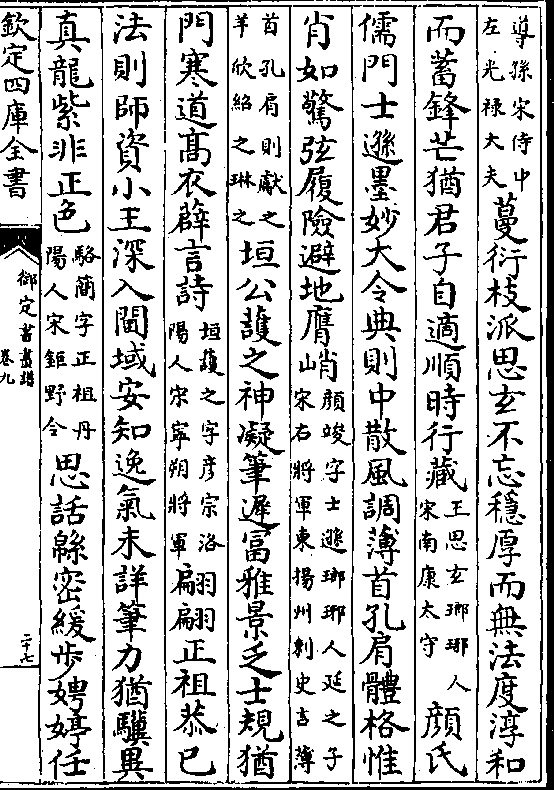 導孫宋侍中
左光禄大夫
蔓衍枝派思玄不忘穩厚而無法度淳和
而蓄鋒芒猶君子自適順時行藏
王思玄瑯琊人
宋南康太守
顔氏
儒門士遜墨妙大令典則中散風調薄首孔肩體格惟
肖如驚弦履險避地膺峭
顔竣字士遜瑯琊人延之子
宋右將軍東揚州刺史言薄
首孔肩則獻之
羊欣紹之琳之
垣公護之神凝筆遲富雅景乏士規猶
門寒道髙衣薜言詩
垣護之字彦宗洛
陽人宋寧朔將軍
翩翩正祖恭已
法則師資小王深入閫域安知逸氣未詳筆力猶驥異
真龍紫非正色
駱蕳字正祖丹
陽人宋鉅野令
思話緜密緩步娉婷任
欽定四庫全書
御定書畫譜
卷九
二十七